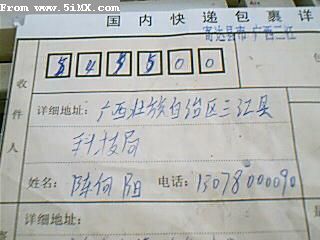 From www.5iMX.com
国内快递包裹详
寄达县市 广西三江
545500
收件人
详细地址: 广西壮族自治区三江县
科技局
姓名: 陈向阳 电话: 13078000090
详细地址: